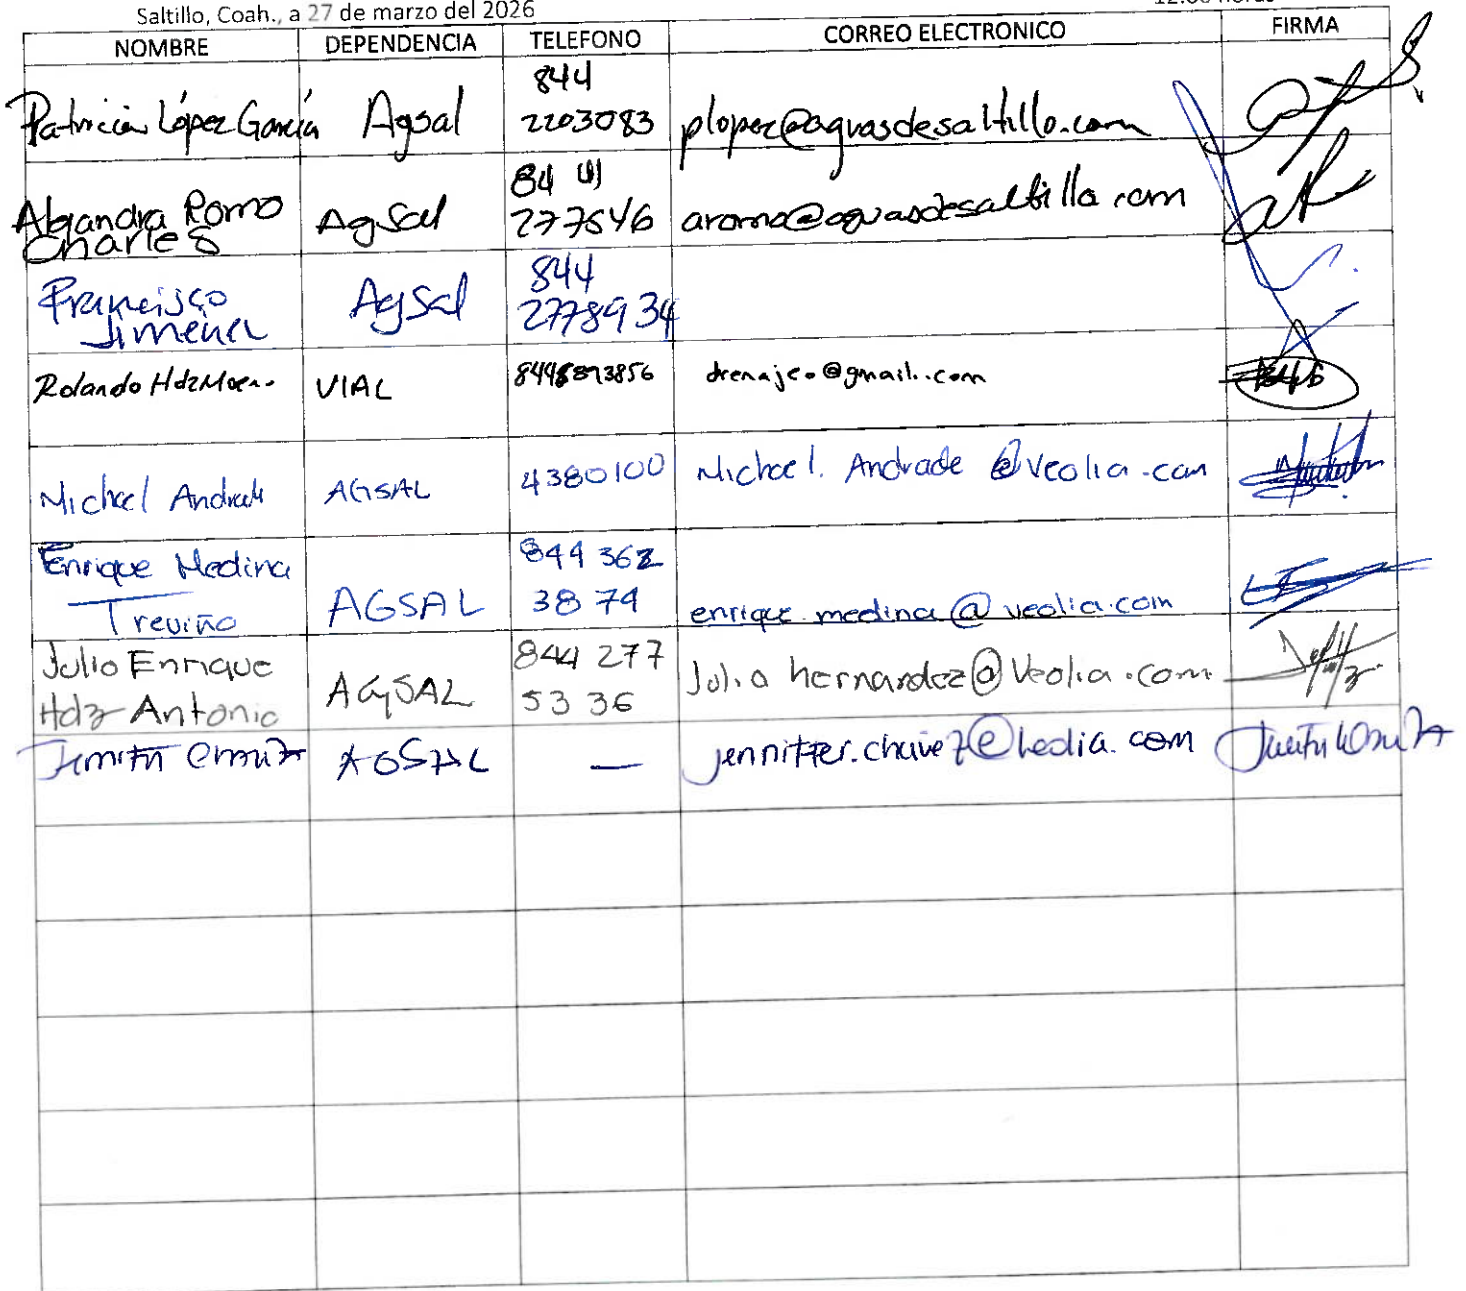 Saltillo, Coah., a 27 de marzo del 2026
NOMBRE DEPENDENCIA TELEFONO CORREO ELECTRONICO FIRMA
Patricia López García Agsal 844 2203083 plopez@aguasdesaltillo.com
Alejandra Romo Charles AgSal 84 277546 aromo@aguasdesaltillo.com
Francisco Jimenez AgSal 844 2778934
Rolando Hdz VIAL @gmail.com
Michael Andrade AGSAL 4380100 Michael.Andrade@veolia.com
Enrique Medina Treviño AGSAL 844 362 3874 enrique.medina@veolia.com
Julio Enrique Hdz Antonio AGSAL 844 277 53 36 Julio hernandez@Veolia.com
AGSAL — jenniffer.chavez@veolia.com